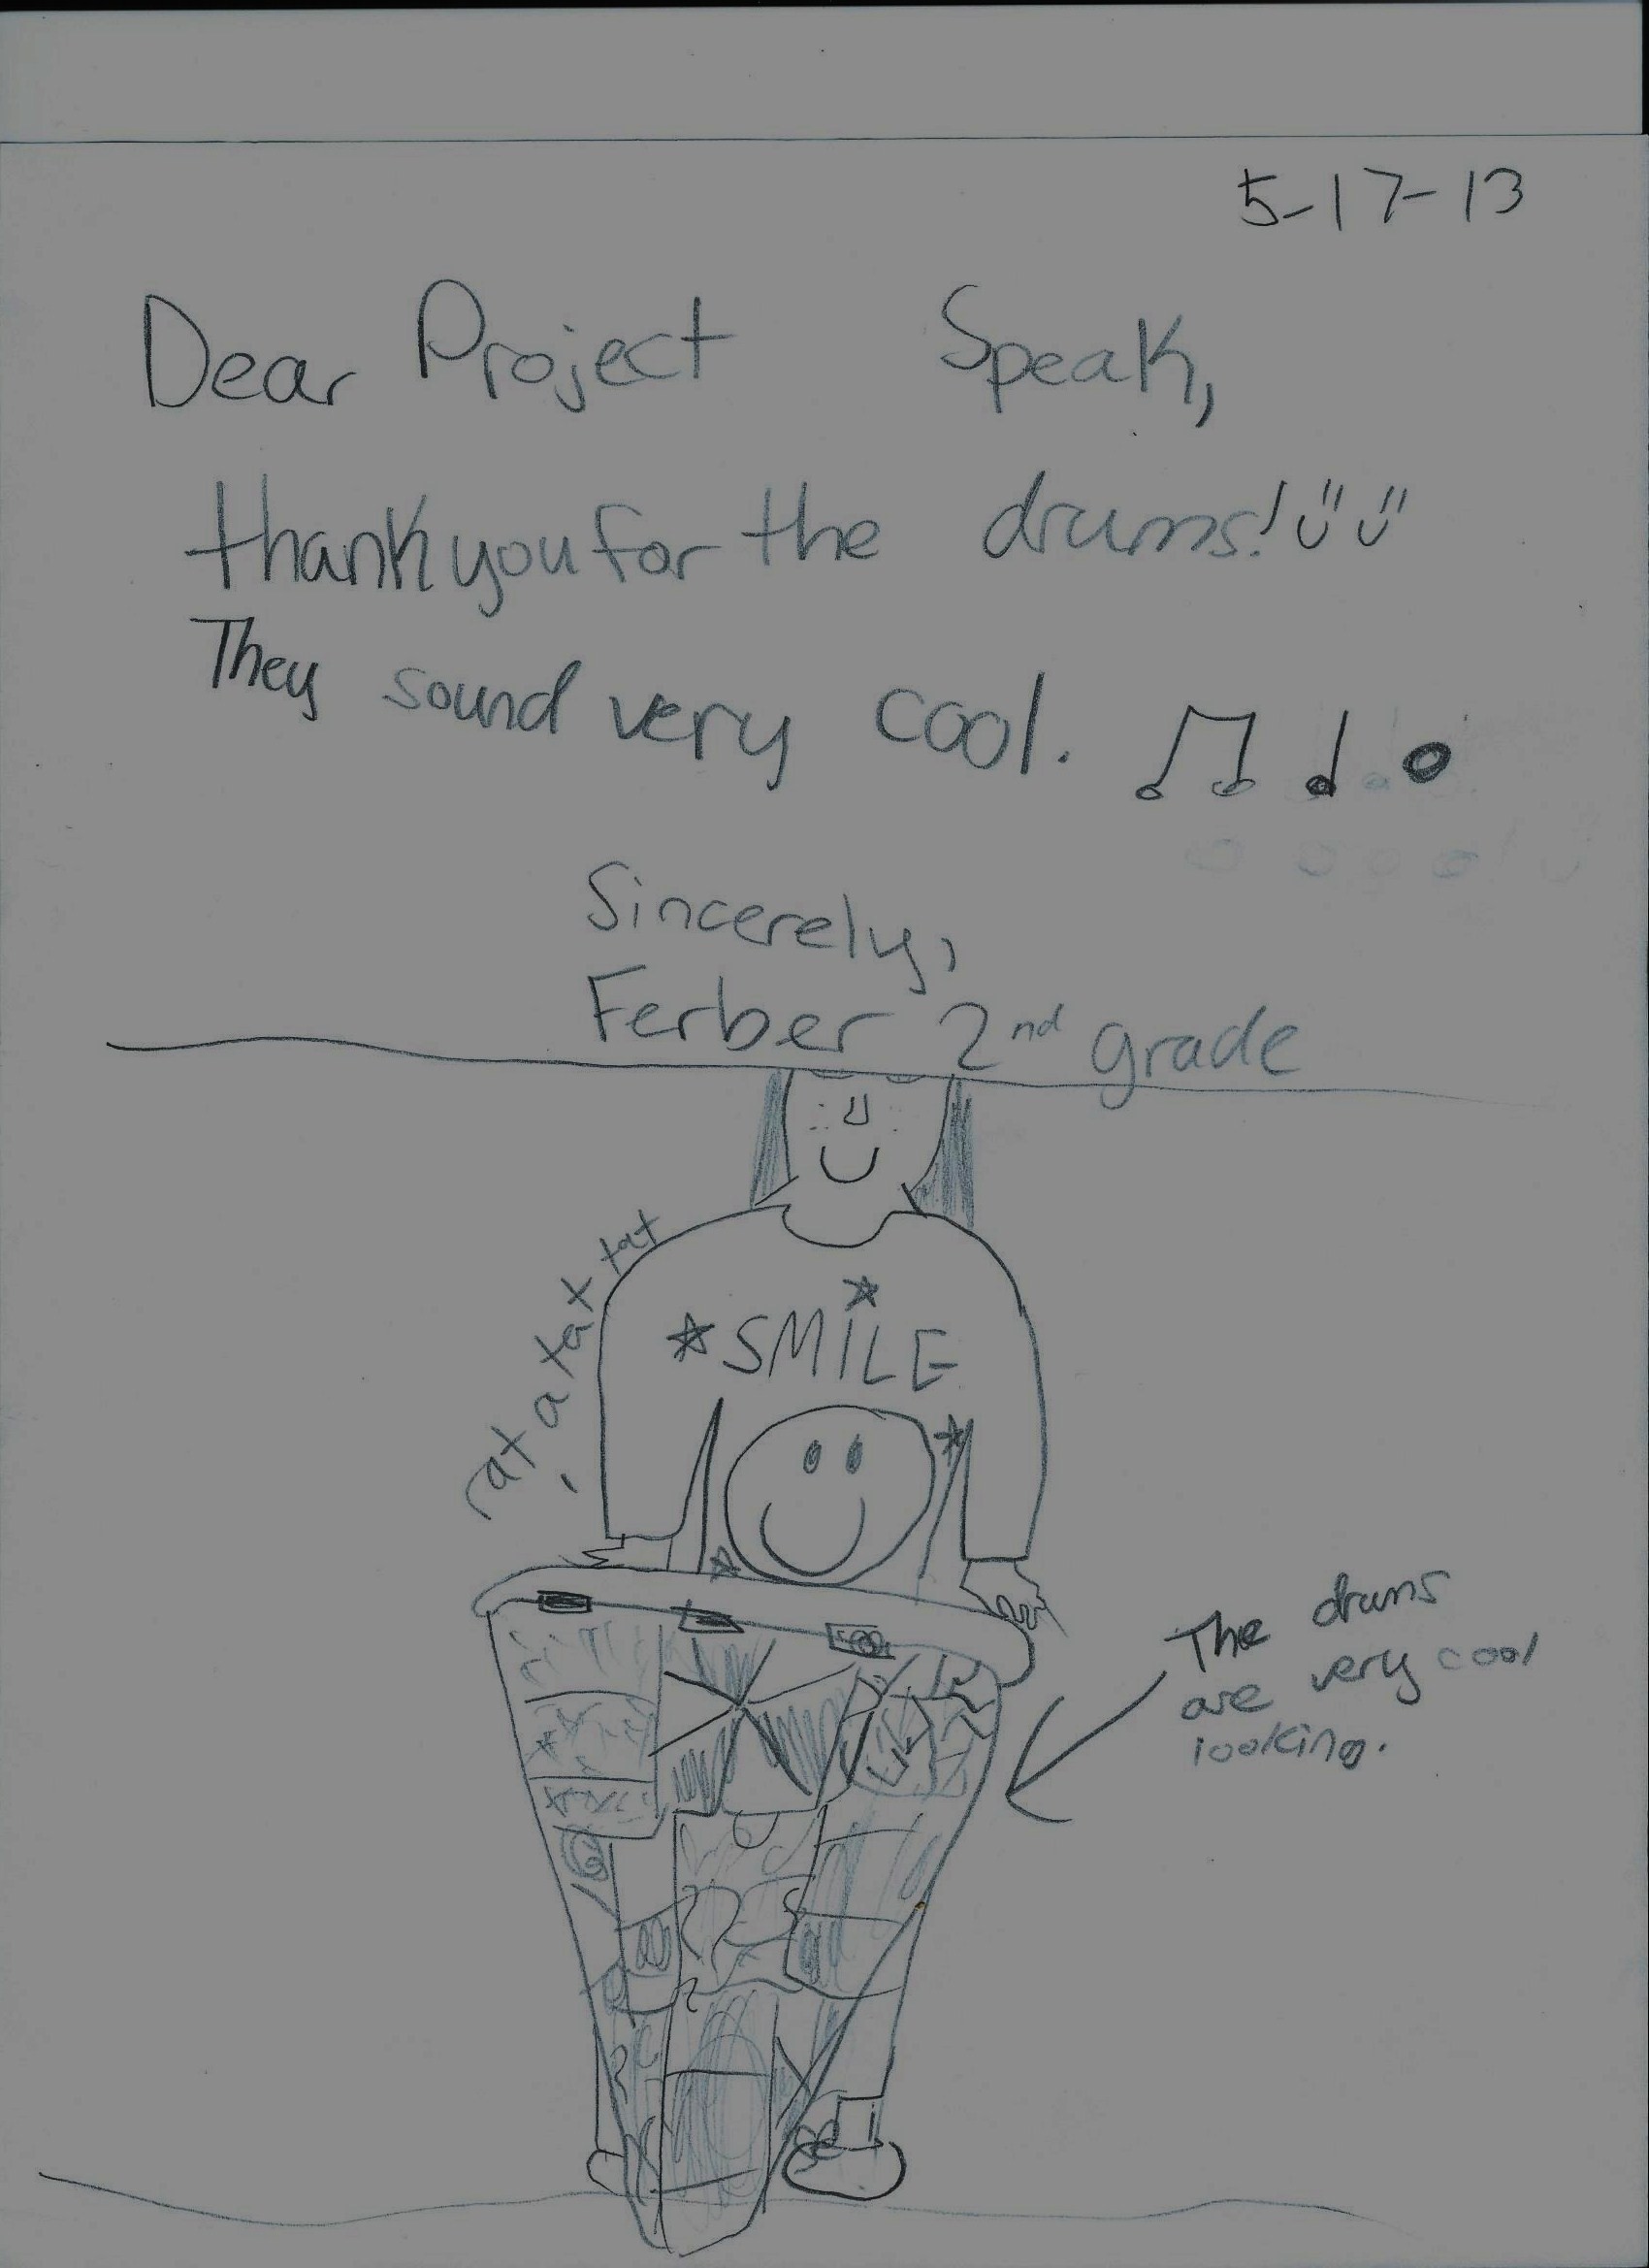 5-17-13
Dear Project Speak,
thank you for the drums!
They sound very cool.
Sincerely,
Ferber 2nd grade
rat a tat tat
SMILE
The drums
are very cool
looking.